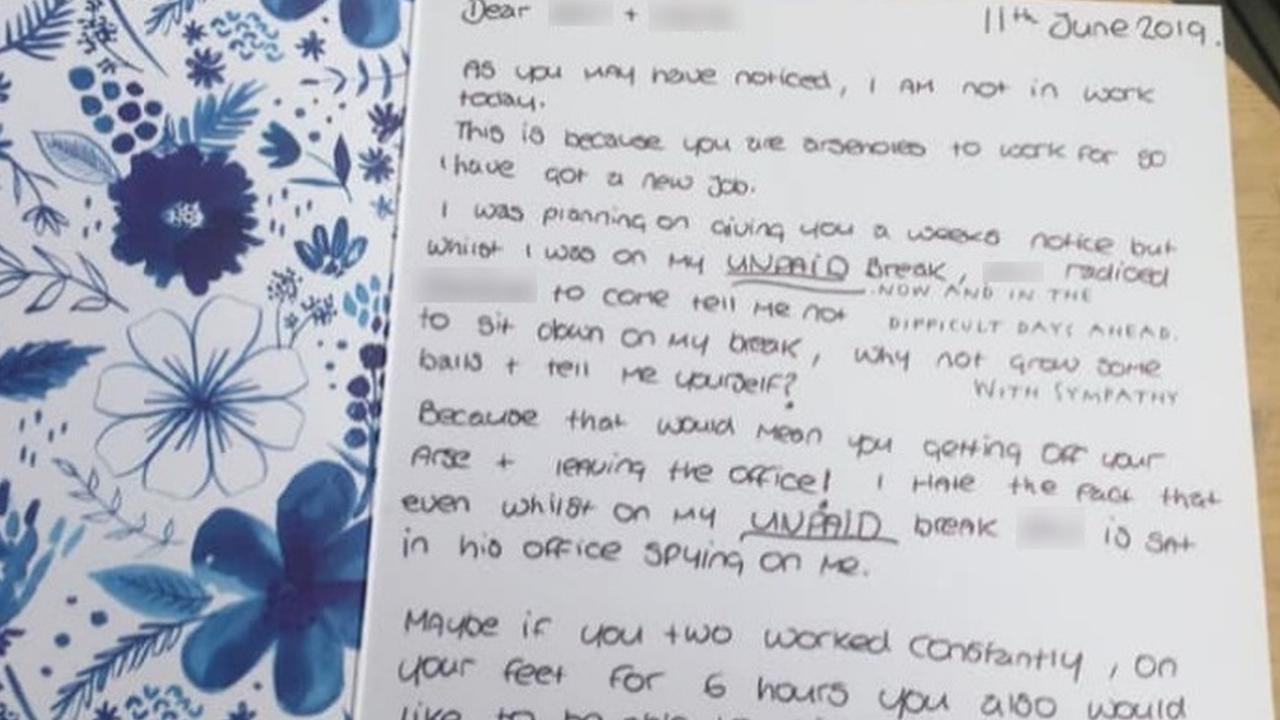 Dear +
11th June 2019.
As you may have noticed, I am not in work
today.
This is because you are arseholes to work for so
I have got a new job.
I was planning on giving you a weeks notice but
whilst I was on my UNPAID Break, radioed
to come tell me not
NOW AND IN THE
DIFFICULT DAYS AHEAD.
to sit down on my break, why not grow some
balls + tell me yourself?
WITH SYMPATHY
Because that would mean you getting off your
Arse + leaving the office! I Hate the fact that
even whilst on my UNPAID break is sat
in his office spying on me.
Maybe if you two worked constantly, on
your feet for 6 hours you also would
like to be able